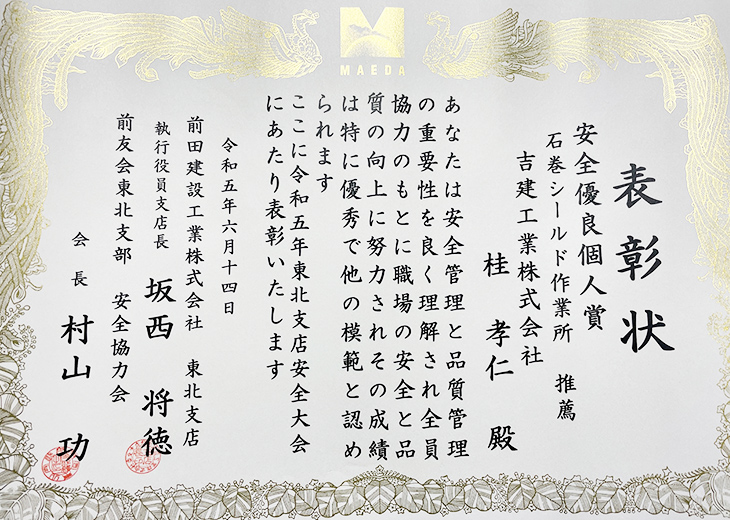 MAEDA
表彰状
安全優良個人賞
石巻シールド作業所 推薦
吉建工業株式会社
桂 孝仁 殿
あなたは安全管理と品質管理
の重要性を良く理解され全員
協力のもとに職場の安全と品
質の向上に努力されその成績
は特に優秀で他の模範と認め
られます
ここに令和五年東北支店安全大会
にあたり表彰いたします
令和五年六月十四日
前田建設工業株式会社 東北支店
執行役員支店長 坂西 将徳
前友会東北支部 安全協力会
会長 村山 功